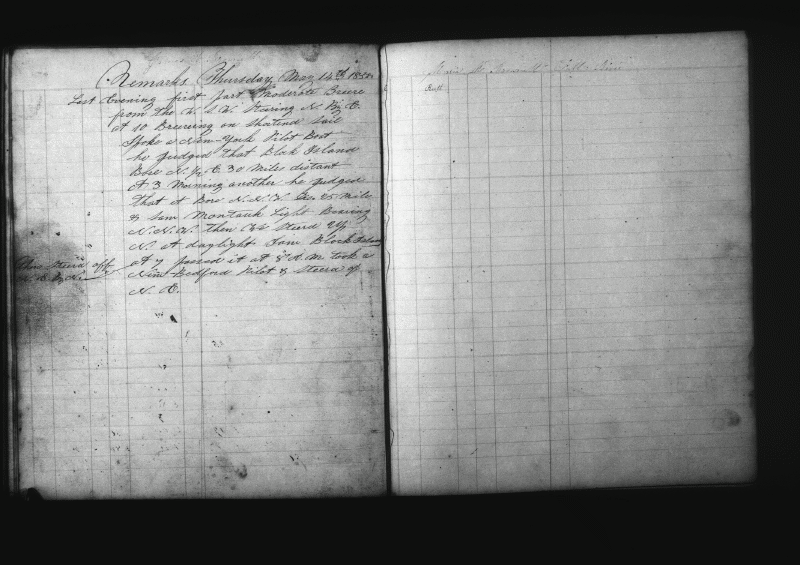 Remarks Thursday May 14th 1852
Last Evening first part Moderate Breeze
from the W. S. W. Stearing N By E
at 10 Breezing on shortend sail
Spoke a New-York Pilot Boat
he judged that Block Island
Bore N. ½ E 30 miles distant
At 3 Morning another he judged
that it Bore N. N. W. 25 mile
& saw Montauk Light Bearing
N. N. W. then we Steerd By
N. at daylight saw Block Island
at 7 passed it at 8 A M took a
New Bedford Pilot & Steerd of
N. E.
then Steerd off
N. E. By N.
Ruth